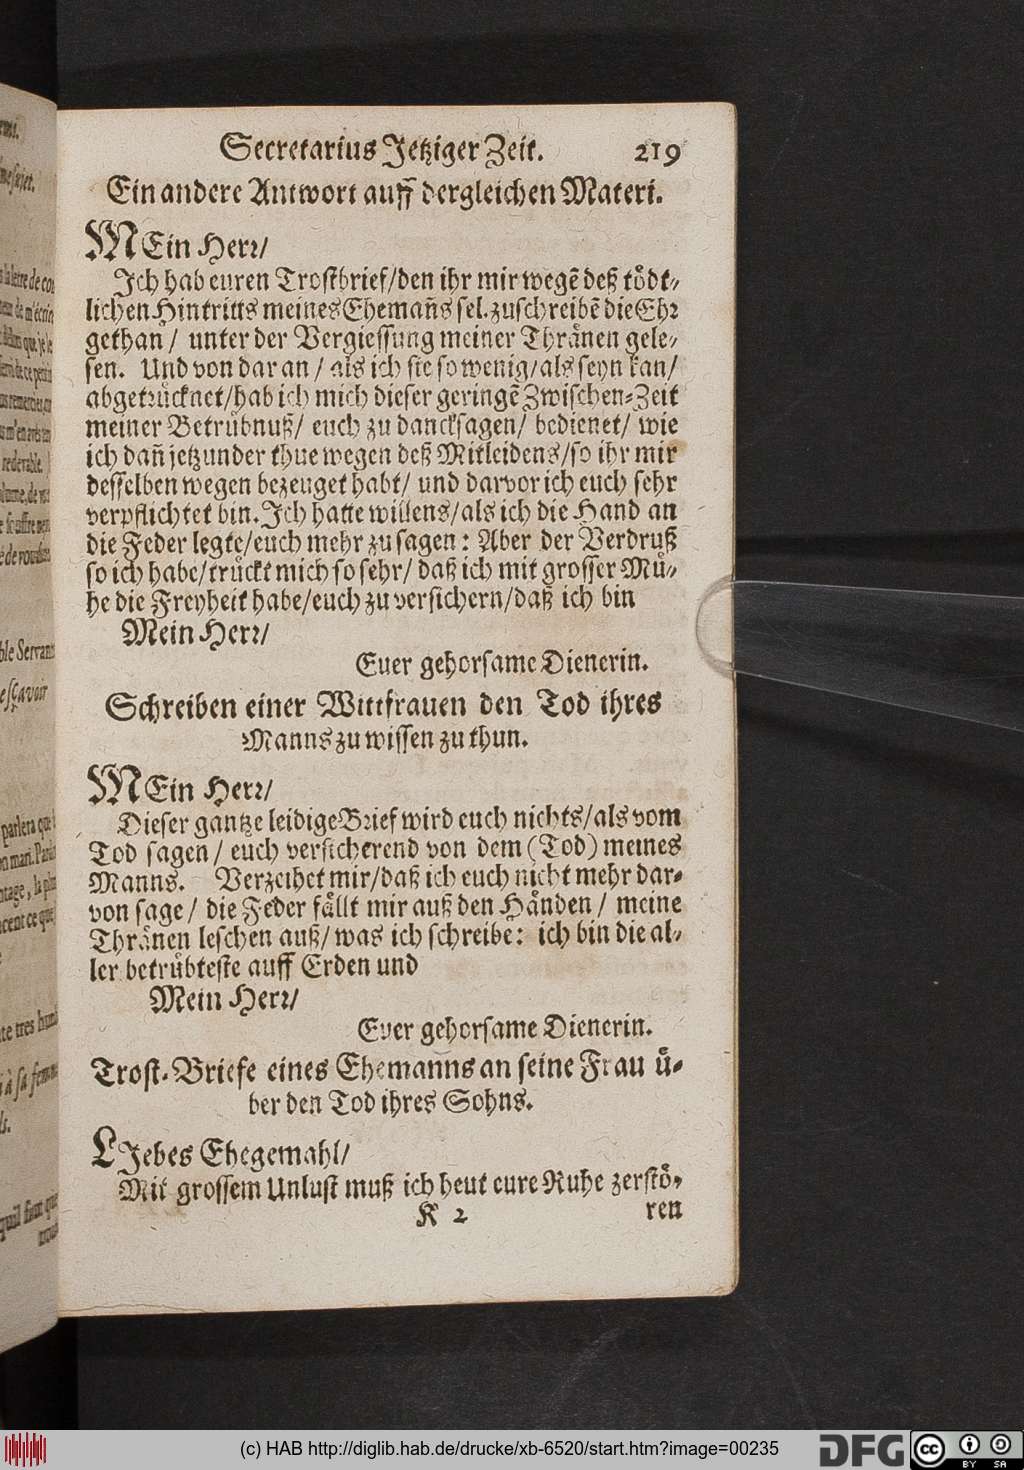 Secretarius Jetziger Zeit. 219
Ein andere Antwort auff dergleichen Materi.
MEin Herr/
Ich hab euren Trostbrief/den ihr mir wegē deß tödt-
lichen Hintritts meines Ehemañs sel. zuschreibē die Ehr
gethan / unter der Vergiessung meiner Thränen gele-
sen. Und von dar an / als ich sie so wenig/als seyn kan/
abgetrücknet/hab ich mich dieser geringē Zwischen-Zeit
meiner Betrübnuß/ euch zu dancksagen/ bedienet/ wie
ich dañ jetzunder thue wegen deß Mitleidens/so ihr mir
desselben wegen bezeuget habt/ und darvor ich euch sehr
verpflichtet bin. Ich hatte willens/als ich die Hand an
die Feder legte/euch mehr zu sagen: Aber der Verdruß
so ich habe/trückt mich so sehr/ daß ich mit grosser Mü-
he die Freyheit habe/euch zu versichern/daß ich bin
Mein Herr/
Euer gehorsame Dienerin.
Schreiben einer Wittfrauen den Tod ihres
Manns zu wissen zu thun.
MEin Herr/
Dieser gantze leidige Brief wird euch nichts/als vom
Tod sagen / euch versicherend von dem (Tod) meines
Manns. Verzeihet mir/daß ich euch nicht mehr dar-
von sage / die Feder fällt mir auß den Händen / meine
Thränen leschen auß/ was ich schreibe: ich bin die al-
ler betrübteste auff Erden und
Mein Herr/
Euer gehorsame Dienerin.
Trost-Briefe eines Ehemanns an seine Frau ü-
ber den Tod ihres Sohns.
LIebes Ehegemahl/
Mit grossem Unlust muß ich heut eure Ruhe zerstö-
K 2 ren
(c) HAB http://diglib.hab.de/drucke/xb-6520/start.htm?image=00235
DFG cc BY SA